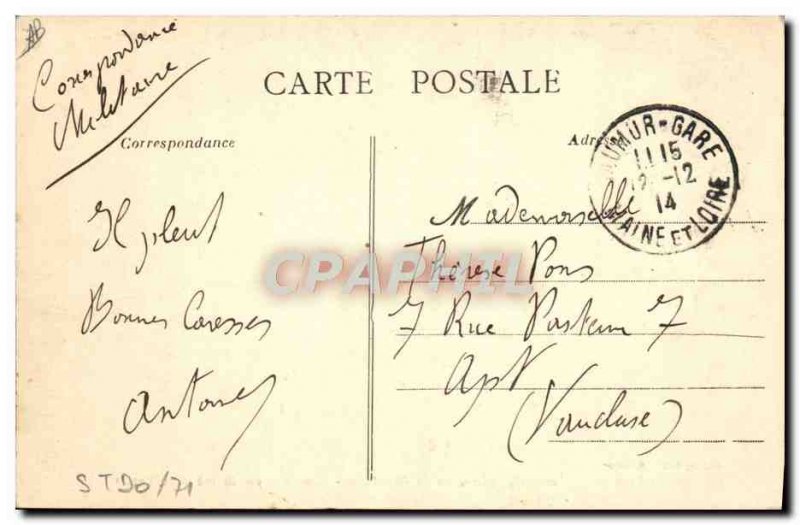 AB
Correspondance
Militaire
CARTE POSTALE
Correspondance
Adresse
SAUMUR-GARE
11 15
12-12
14
MAINE ET LOIRE
Il pleut
Bonnes Caresses
Antoine
Mademoiselle
Thérèse Pons
7 Rue Pasteur 7
Apt
(Vaucluse)
CPAPHIL
STDO/71